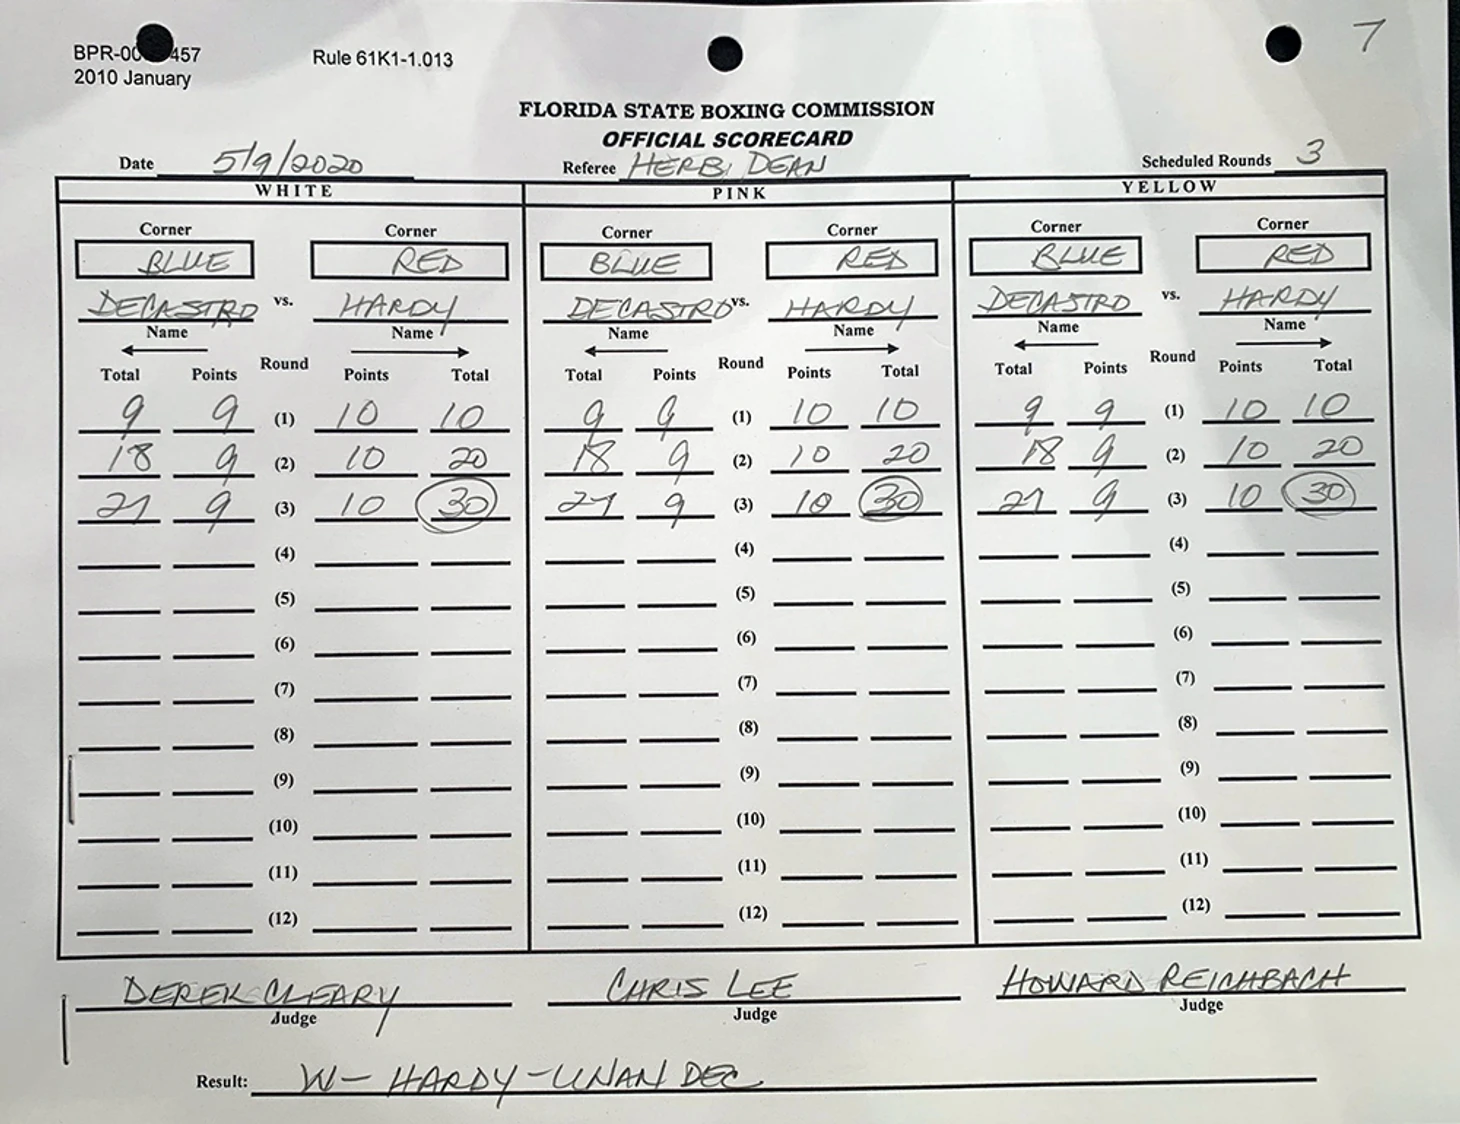 7
BPR-00 457 Rule 61K1-1.013
2010 January
FLORIDA STATE BOXING COMMISSION
OFFICIAL SCORECARD
Date 5/9/2020 Referee HERB DEAN Scheduled Rounds 3
WHITE PINK YELLOW
Corner Corner Corner Corner Corner Corner
BLUE RED BLUE RED BLUE RED
DECASTRO vs. HARDY DECASTRO vs. HARDY DECASTRO vs. HARDY
Name Name Name Name Name Name
Total Points Round Points Total Total Points Round Points Total Total Points Round Points Total
9 9 (1) 10 10 9 9 (1) 10 10 9 9 (1) 10 10
18 9 (2) 10 20 18 9 (2) 10 20 18 9 (2) 10 20
27 9 (3) 10 30 27 9 (3) 10 30 27 9 (3) 10 30
(4) (4) (4)
(5) (5) (5)
(6) (6) (6)
(7) (7) (7)
(8) (8) (8)
(9) (9) (9)
(10) (10) (10)
(11) (11) (11)
(12) (12) (12)
DEREK CLEARY CHRIS LEE HOWARD REICHBACH
Judge Judge Judge
Result: W- HARDY - UNAN DEC